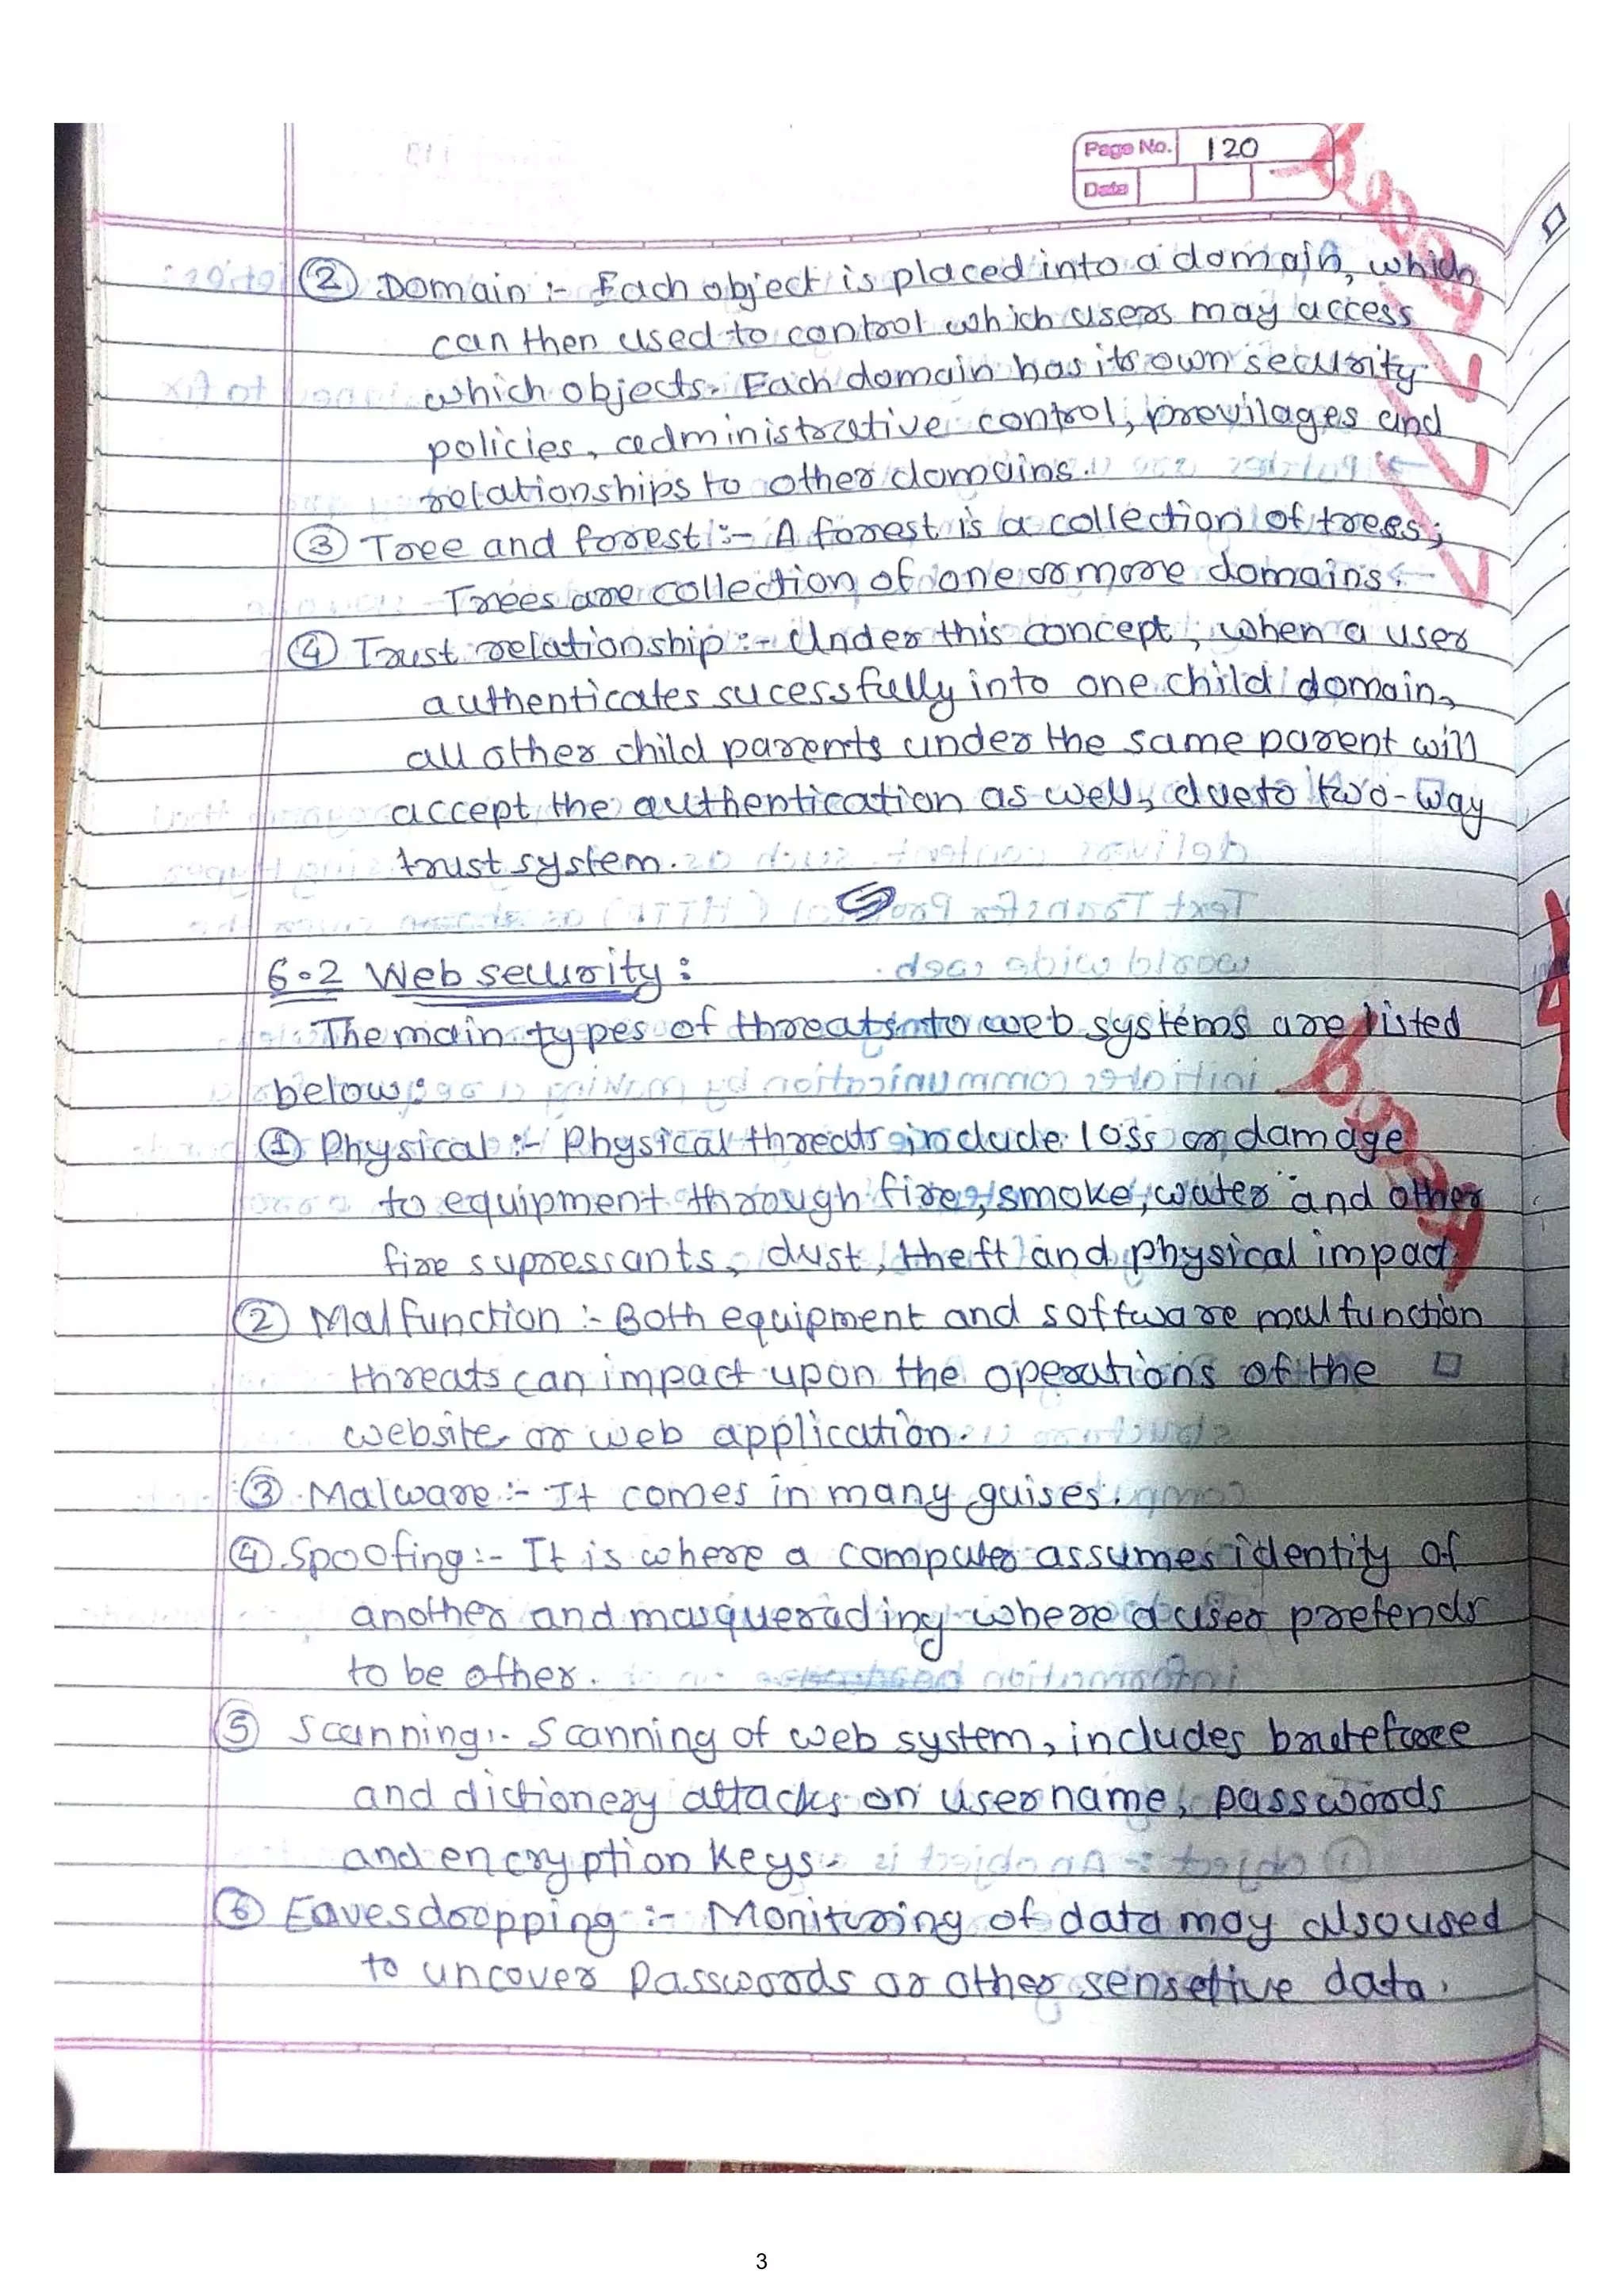 Page No. 120
Date
② Domain :- Each object is placed into a domain, which
can then used to control which users may access
which objects. Each domain has its own security
policies, administrative control, previlages and
relationships to other domains.
③ Tree and forest :- A forrest is a collection of trees;
Trees are collection of one or more domains.
④ Trust relationship :- Under this concept, when a user
authenticates sucessfully into one child domain,
all other child parents under the same parent will
accept the authentication as well, due to two-way
trust system.
6.2 Web security :
The main types of threats to web systems are listed
below:
① Physical :- Physical threats include loss or damage
to equipment through fire, smoke, water and other
fire supressants, dust, theft and physical impact
② Malfunction :- Both equipment and software malfunction
threats can impact upon the operations of the
website or web application.
③ Malware :- It comes in many guises.
④ Spoofing :- It is where a computer assumes identity of
another and masquerading where a user pretends
to be other.
⑤ Scanning :- Scanning of web system, includes bruteforce
and dictionery attacks on username, passwords
and encryption keys.
⑥ Eavesdropping :- Monituring of data may also used
to uncover passwords or other sensetive data.
3